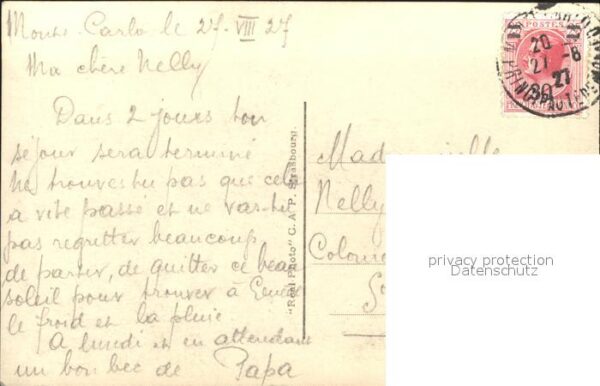 Monte-Carlo le 27-VIII 27
Ma chère Nelly
Dans 2 jours ton
séjour sera terminé
Ne trouves tu pas que cela
a vite passé et ne vas-tu
pas regretter beaucoup
de partir, de quitter ce beau
soleil pour trouver à Genève
le froid et la pluie.
A lundi et en attendant
un bon bec de Papa
"Real Photo" C. A. P. Strasbourg.
POSTES
20
27-8
27
Mademoiselle
Nelly
privacy protection
Datenschutz